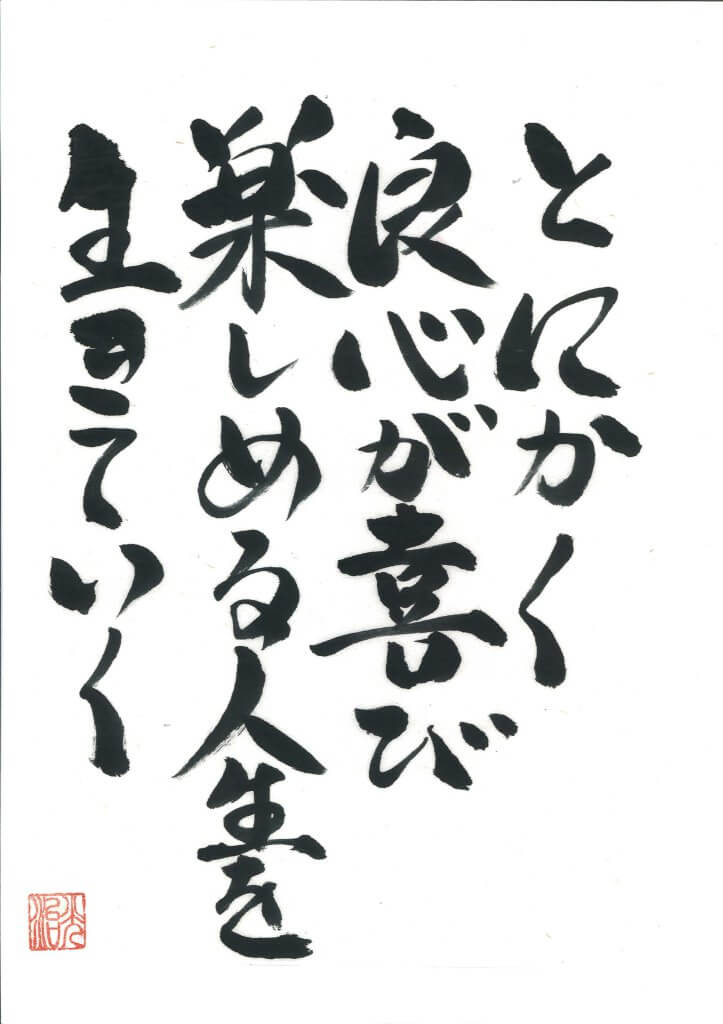 とにかく
良心が喜び
楽しめる人生を
生きていく